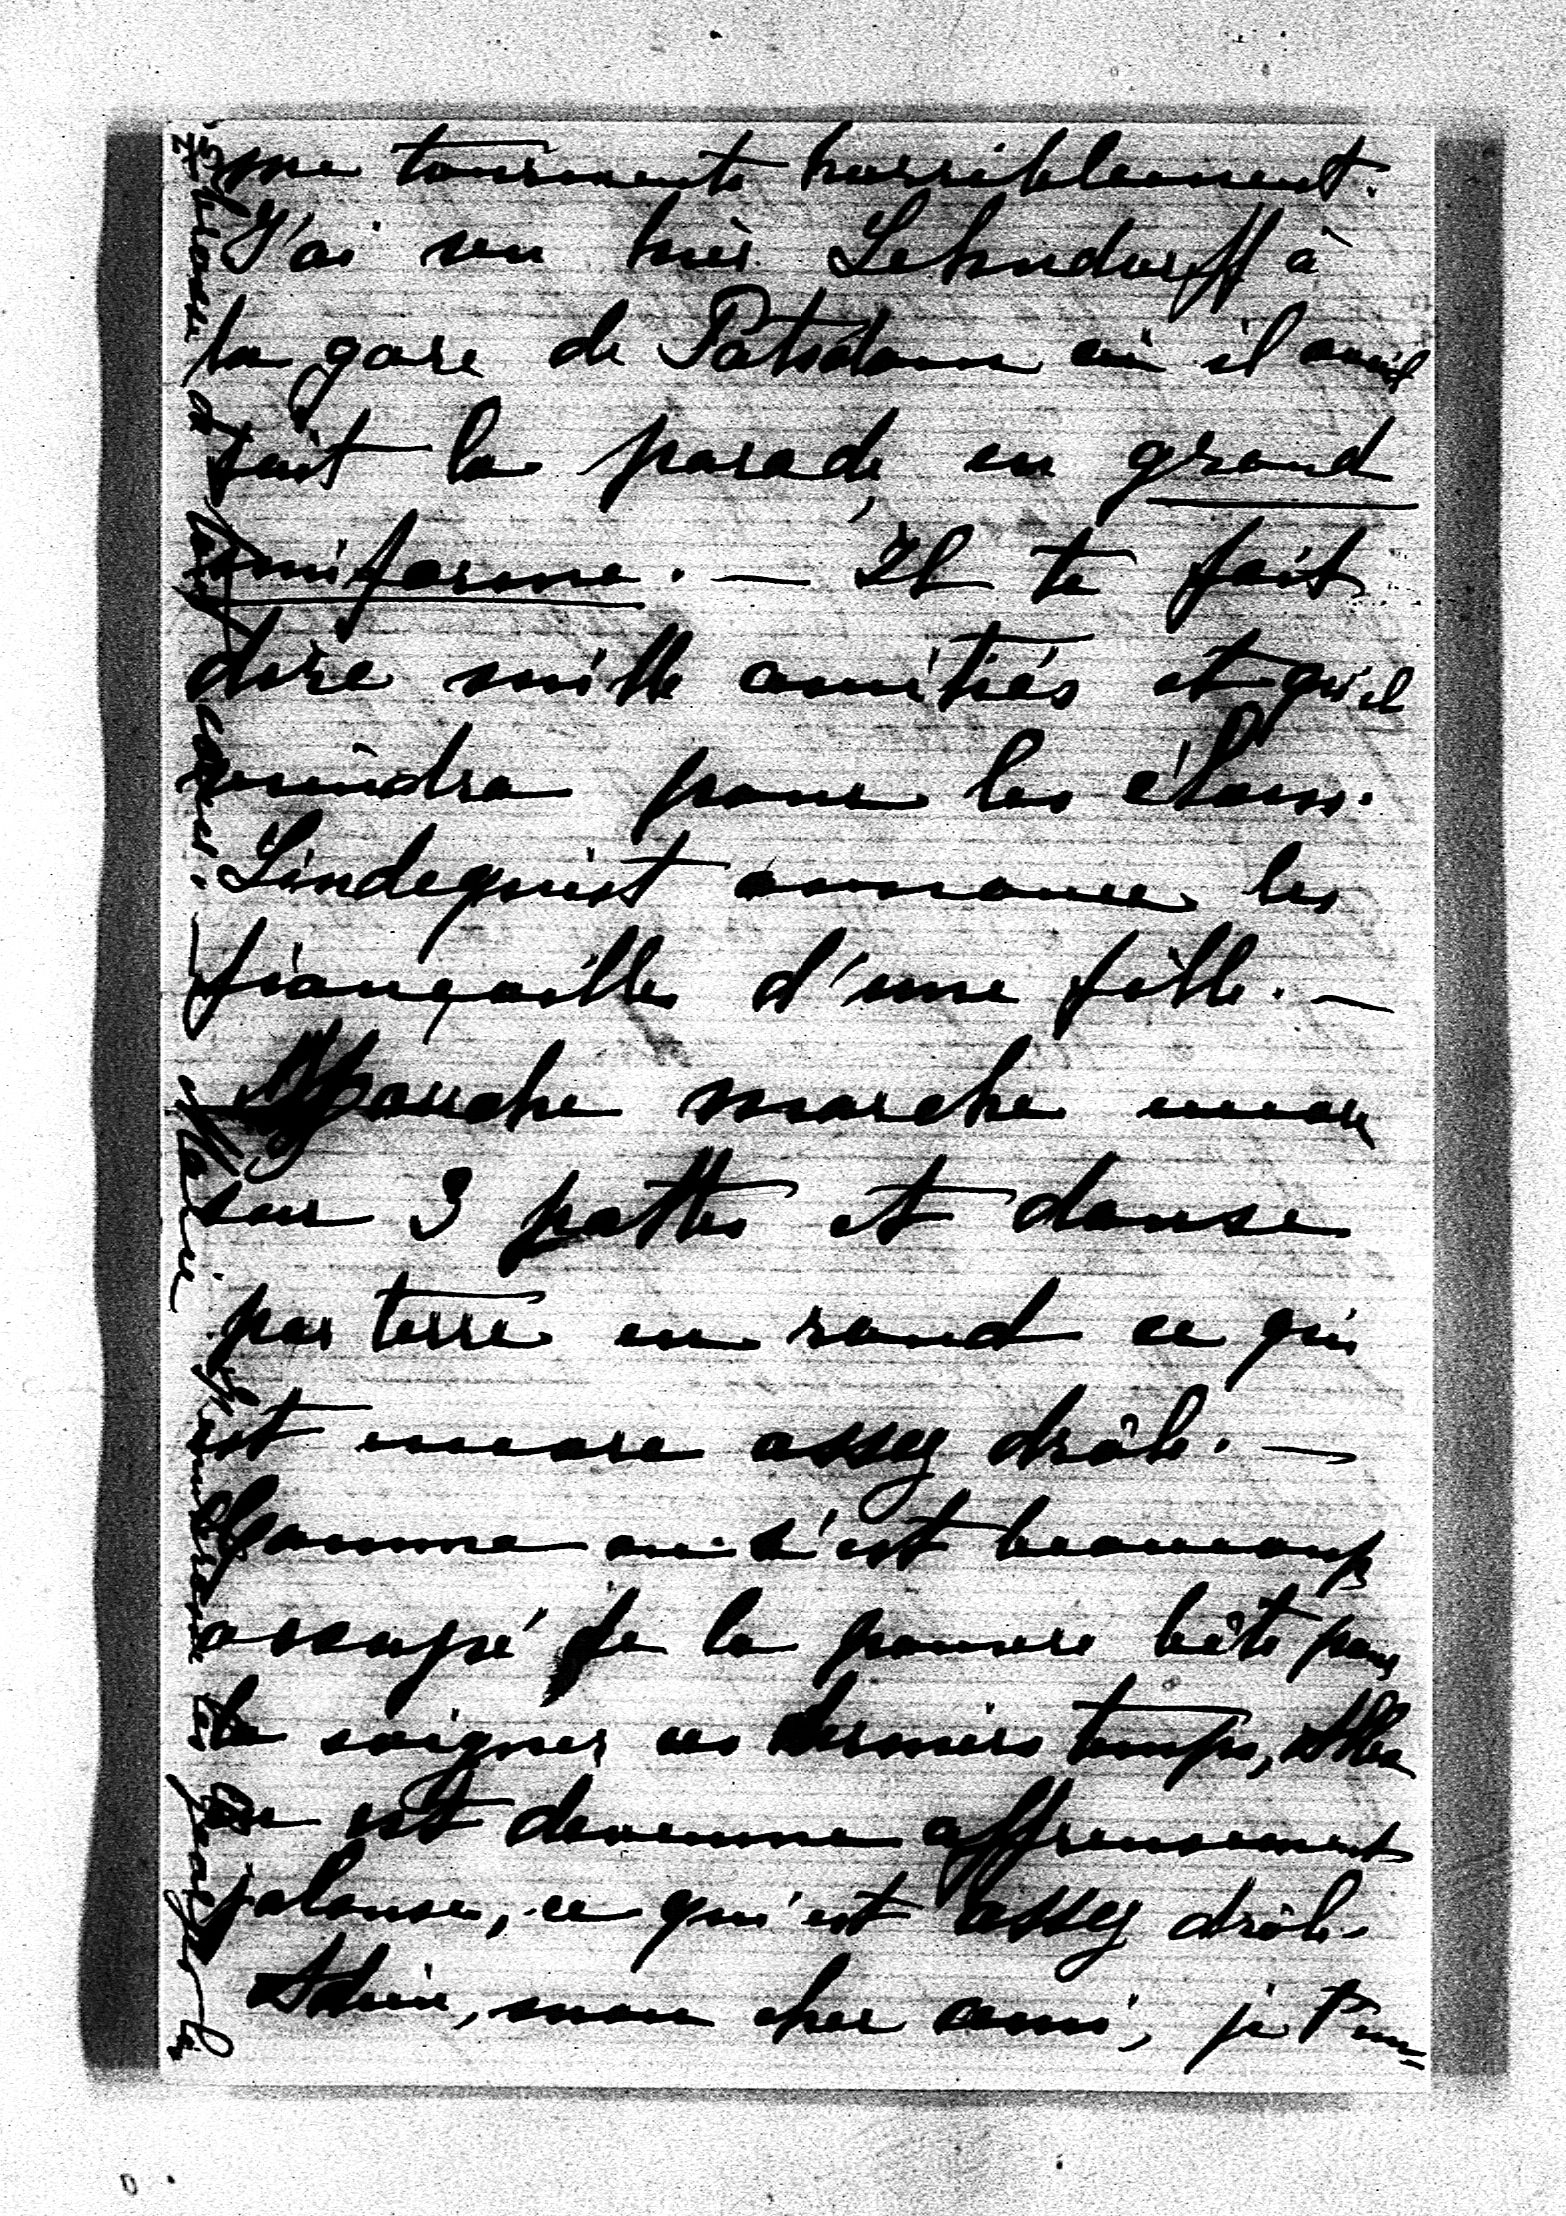 me tourmente horriblement.
J'ai vu hièr Lehndorff à
la gare de Potsdam où il avait
fait la parade, en grand
uniforme. — Il te fait
dire mille amitiés et qu'il
viendra pour les élans.
Lindequist annonce les
fiançailles d'une fille. —
Mouche marche encore
sur 3 pattes et danse
par terre en rond ce qui
est encore assez drôle. —
Comme on s'est beaucoup
occupé de la pauvre bête pour
la soigner ces derniers temps,
est devenue affreusement
jalouse, ce qui est assez drôle.
Adieu, mon cher ami, je t'em-